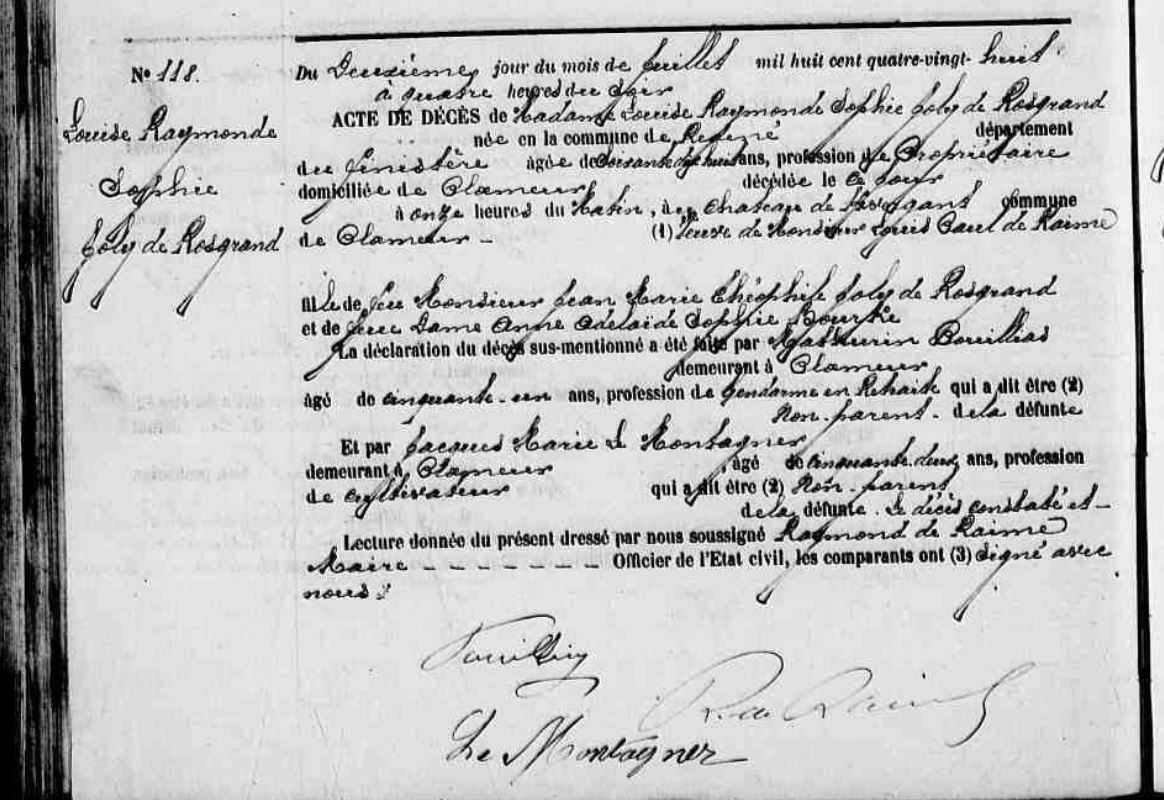 Nº 118.
Louise Raymonde
Sophie
Joly de Rosgrand
Du Deuxième jour du mois de Juillet mil huit cent quatre-vingt-huit
à quatre heures du Soir
ACTE DE DÉCÈS de Madame Louise Raymonde Sophie Joly de Rosgrand
née en la commune de département
du Finistère âgée de soixante dix huit ans, profession de Propriétaire
domiciliée de Plameur décédée le ce jour
à onze heures du Matin, au Chateau de commune
de Plameur - (1) Veuve de Monsieur Louis Paul de Raime
fille de feu Monsieur Jean Marie Théophile Joly de Rosgrand
et de feue Dame Anne Adelaïde Sophie Bourke
La déclaration du décès sus-mentionné a été faite par Mathurin Bouillias
demeurant à Plameur
âgé de cinquante-un ans, profession de Gendarme en Retraite qui a dit être (2)
Non-parent - de la défunte
Et par Jacques Marie Le Montagner
demeurant à Plameur, âgé de cinquante deux ans, profession
de cultivateur qui a dit être (2) Non-parent
de la défunte. Le décès constaté et -
Lecture donnée du présent dressé par nous soussigné Raymond de Raime
Maire - - - - - - - Officier de l'Etat civil, les comparants ont (3) signé avec
nous.
Le Montagner